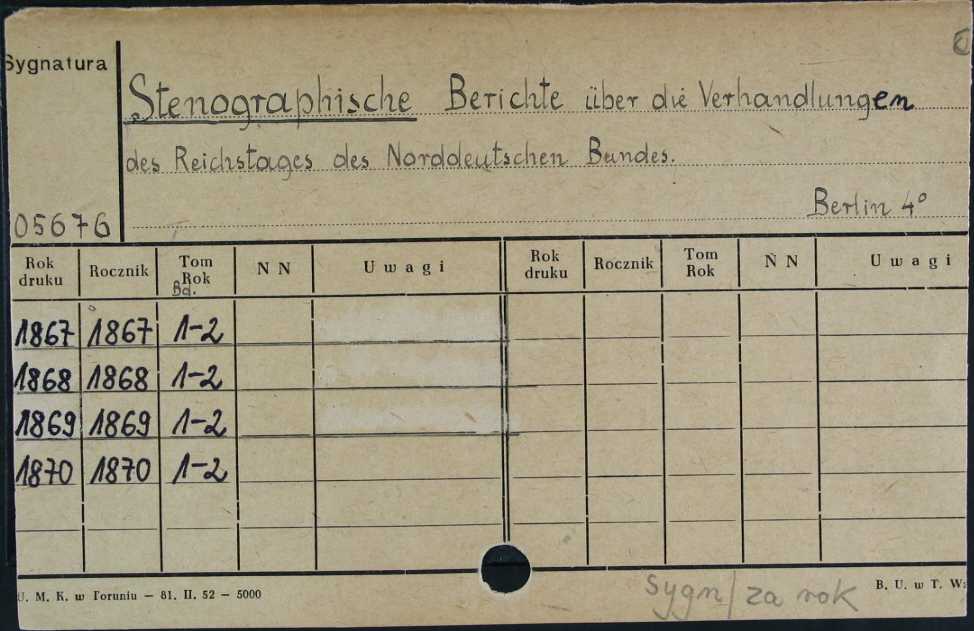 Sygnatura
Stenographische Berichte über die Verhandlungen
des Reichstages des Norddeutschen Bundes.
Berlin 4°
05676
Rok druku Rocznik Tom Rok Bd. N N Uwagi Rok druku Rocznik Tom Rok N N Uwagi
1867 1867 1-2
1868 1868 1-2
1869 1869 1-2
1870 1870 1-2
U. M. K. w Toruniu — 81. II. 52 — 5000
Sygn/za rok
B. U. w T.